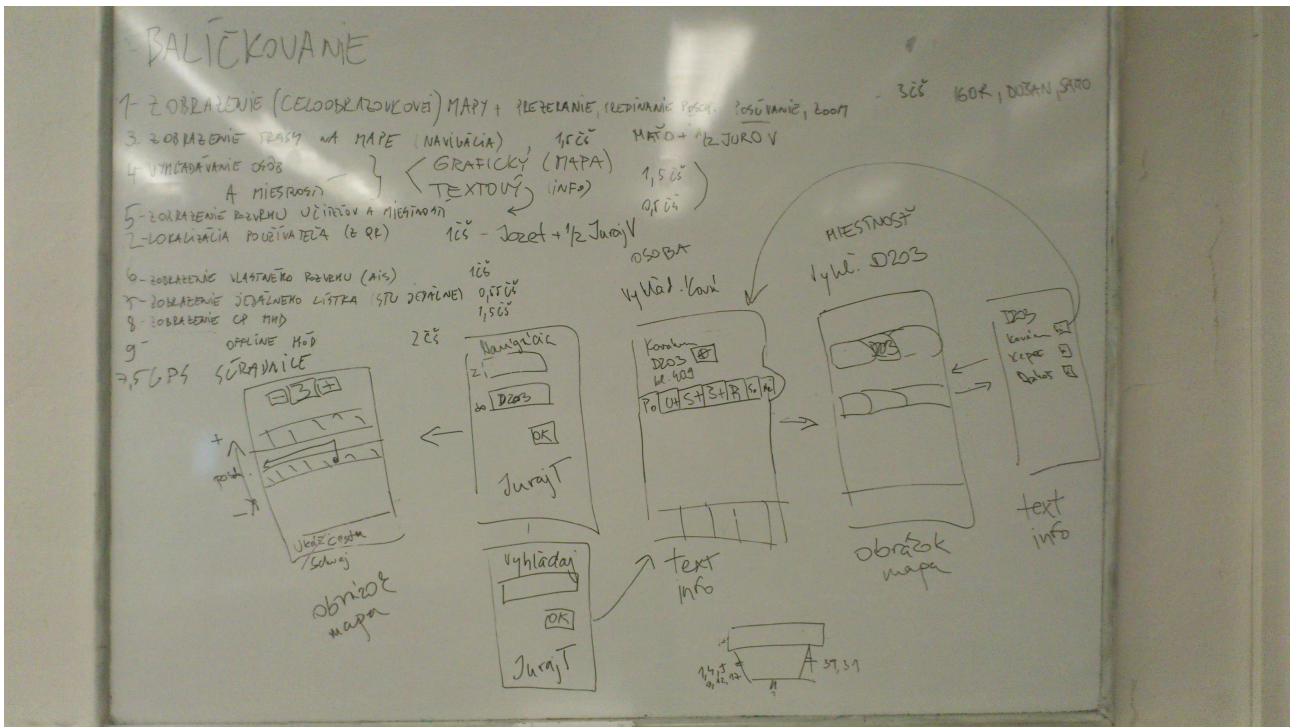 BALÍČKOVANIE
1- ZOBRAZENIE (CELOOBRAZOVKOVEJ) MAPY + PREZERANIE, POSÚVANIE, ZOOM - 3čš IGOR, DUŠAN,
3- ZOBRAZENIE TRASY NA MAPE (NAVIGÁCIA), 1,5čš MAŤO + 1/2 JURO V
4- VYHĽADÁVANIE OSÔB
A MIESTNOSTÍ
GRAFICKÝ (MAPA) 1,5čš
TEXTOVÝ (INFO) 0,5čš
5- ZOBRAZENIE ROZVRHU UČITEĽOV A MIESTNOSTÍ
2- LOKALIZÁCIA POUŽÍVATEĽA (Z QR) 1čš - Jozef + 1/2 Juraj V
6- ZOBRAZENIE VLASTNÉHO ROZVRHU (AIS) 1čš
7- ZOBRAZENIE JEDÁLNEHO LÍSTKA (STU JEDÁLNE)
8- ZOBRAZENIE CP MHD 1,5čš
9- OFFLINE MÓD 2čš
7,5 GPS SÚRADNICE
- 3 +
+
-
Ukáž cestu
obrázok
mapa
Navigácia
Z
do D203
OK
Juraj T
Vyhľadaj
OK
Juraj T
OSOBA
D203
kl. 409
Po Ut St
text
info
MIESTNOSŤ
Vyhľ. D203
D203
obrázok
mapa
D203
text
info
31, 51